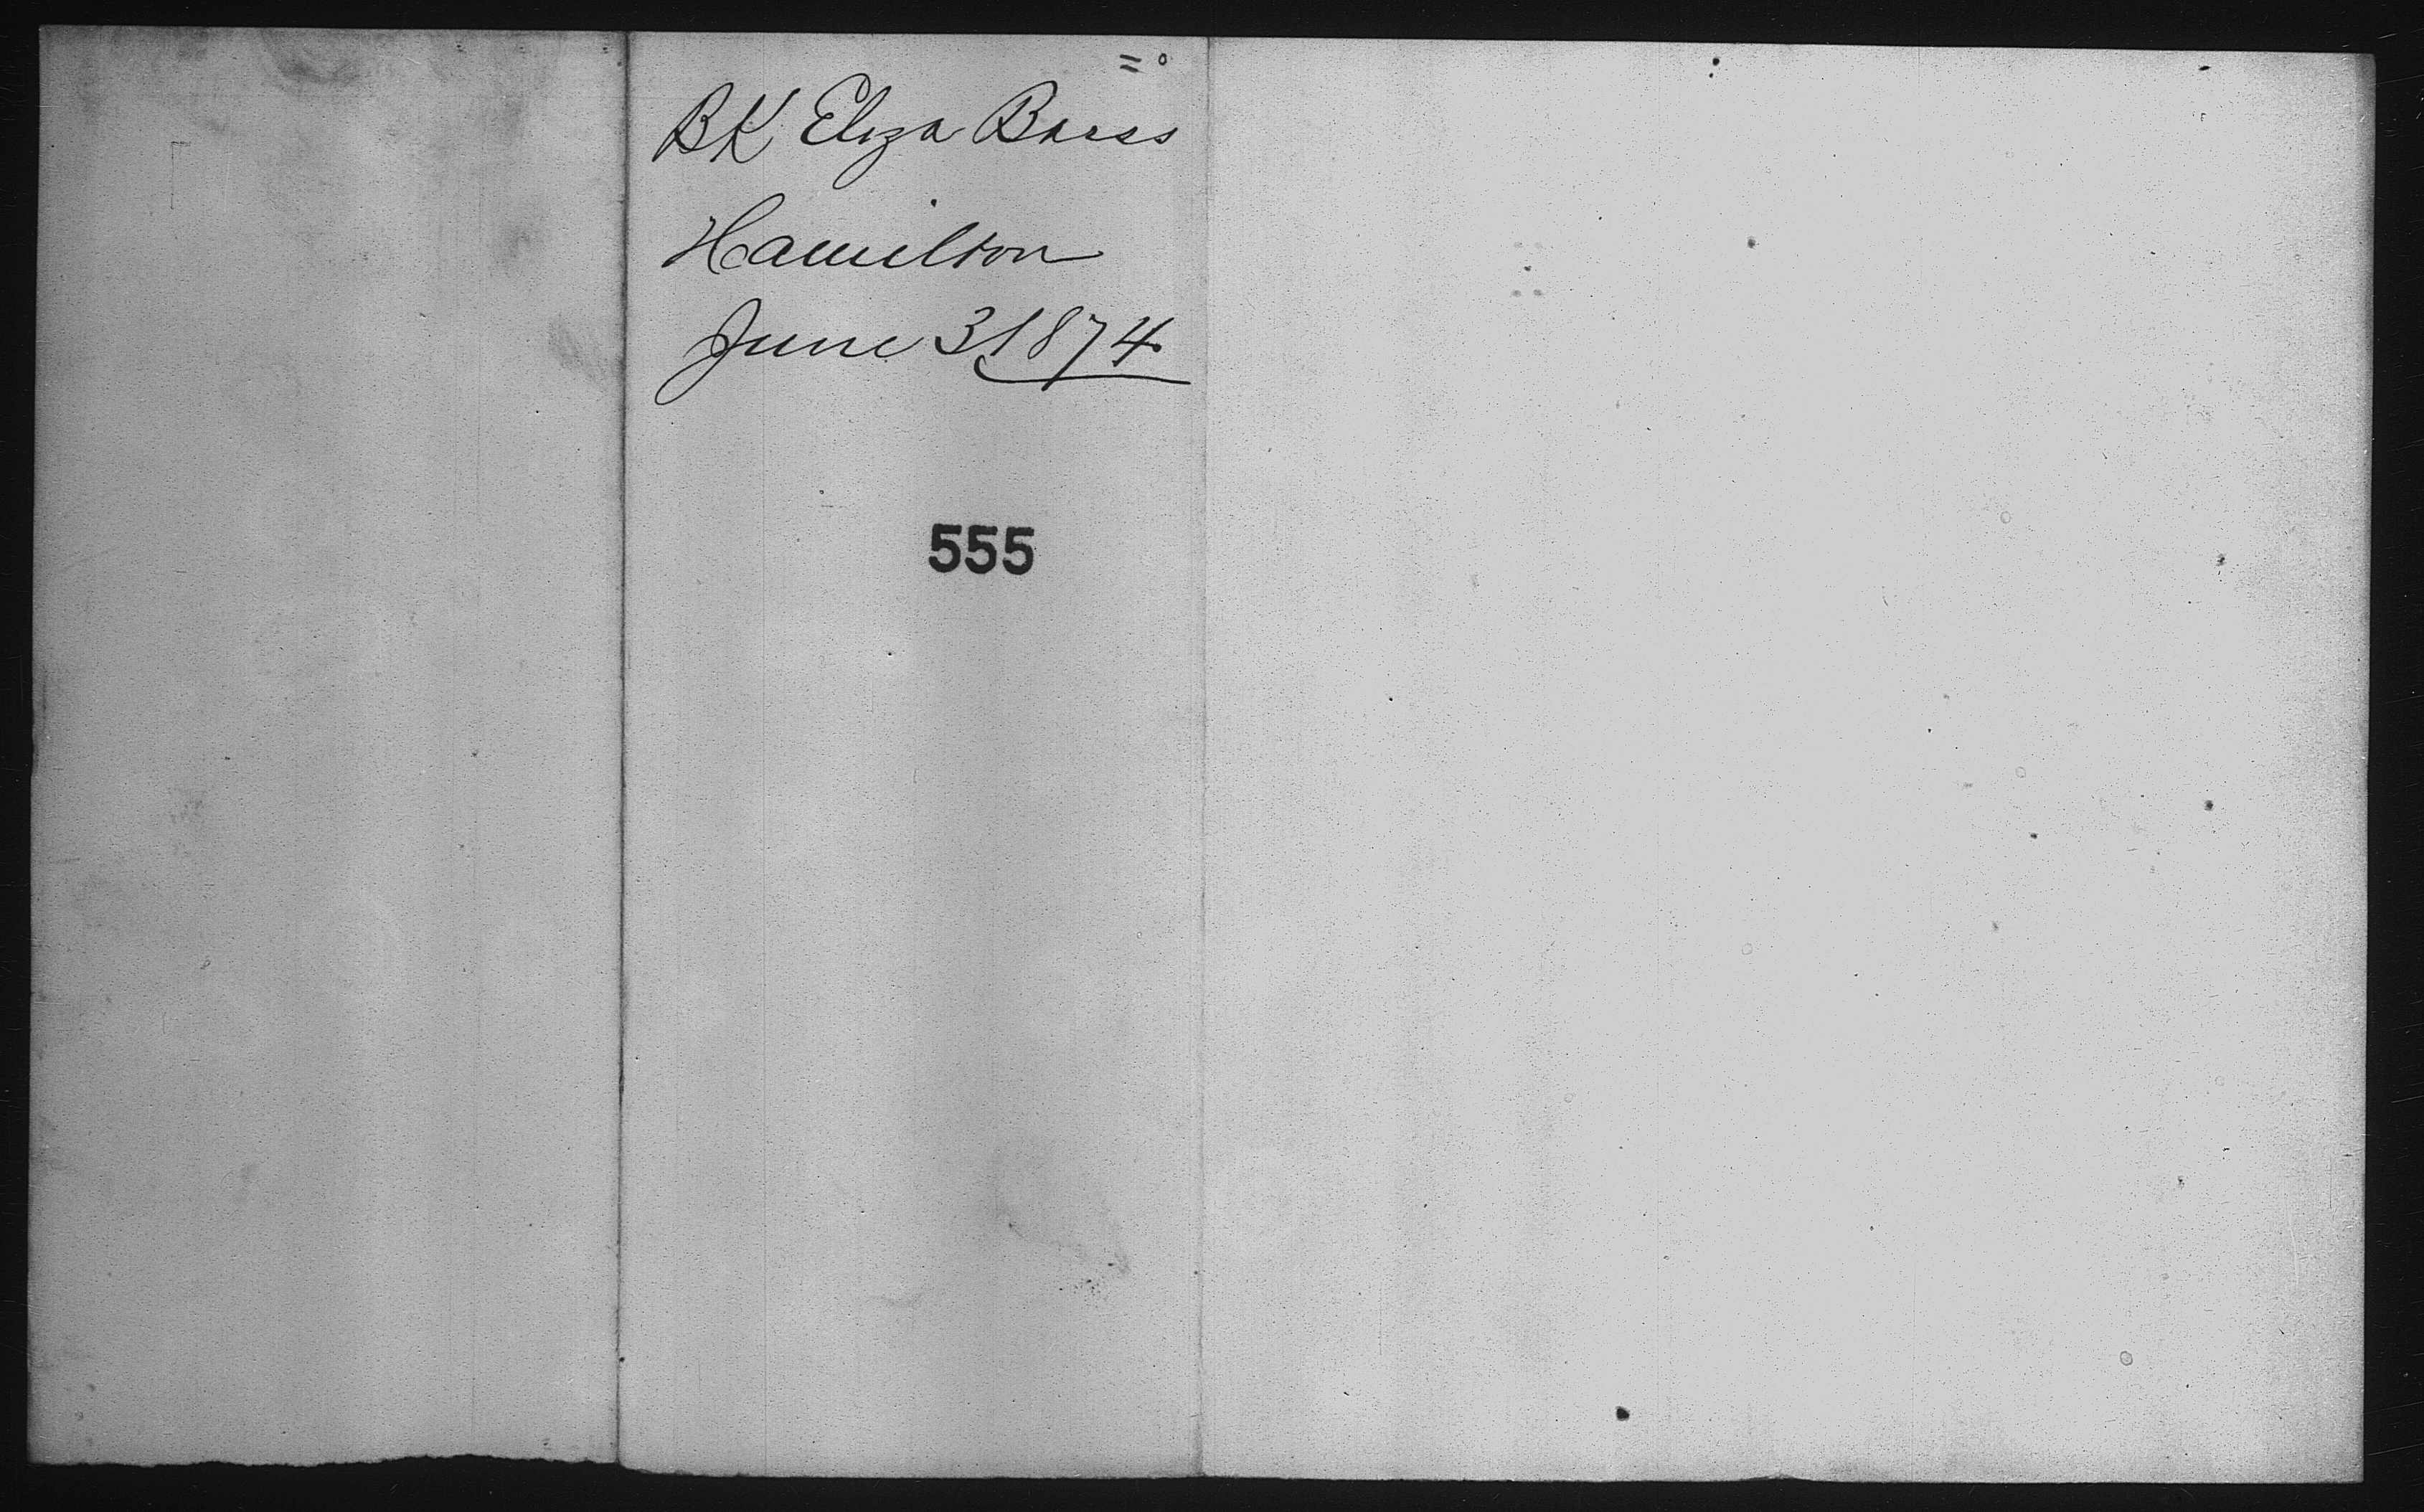 BK Eliza Barss
Hamilton
June 3 1874
555